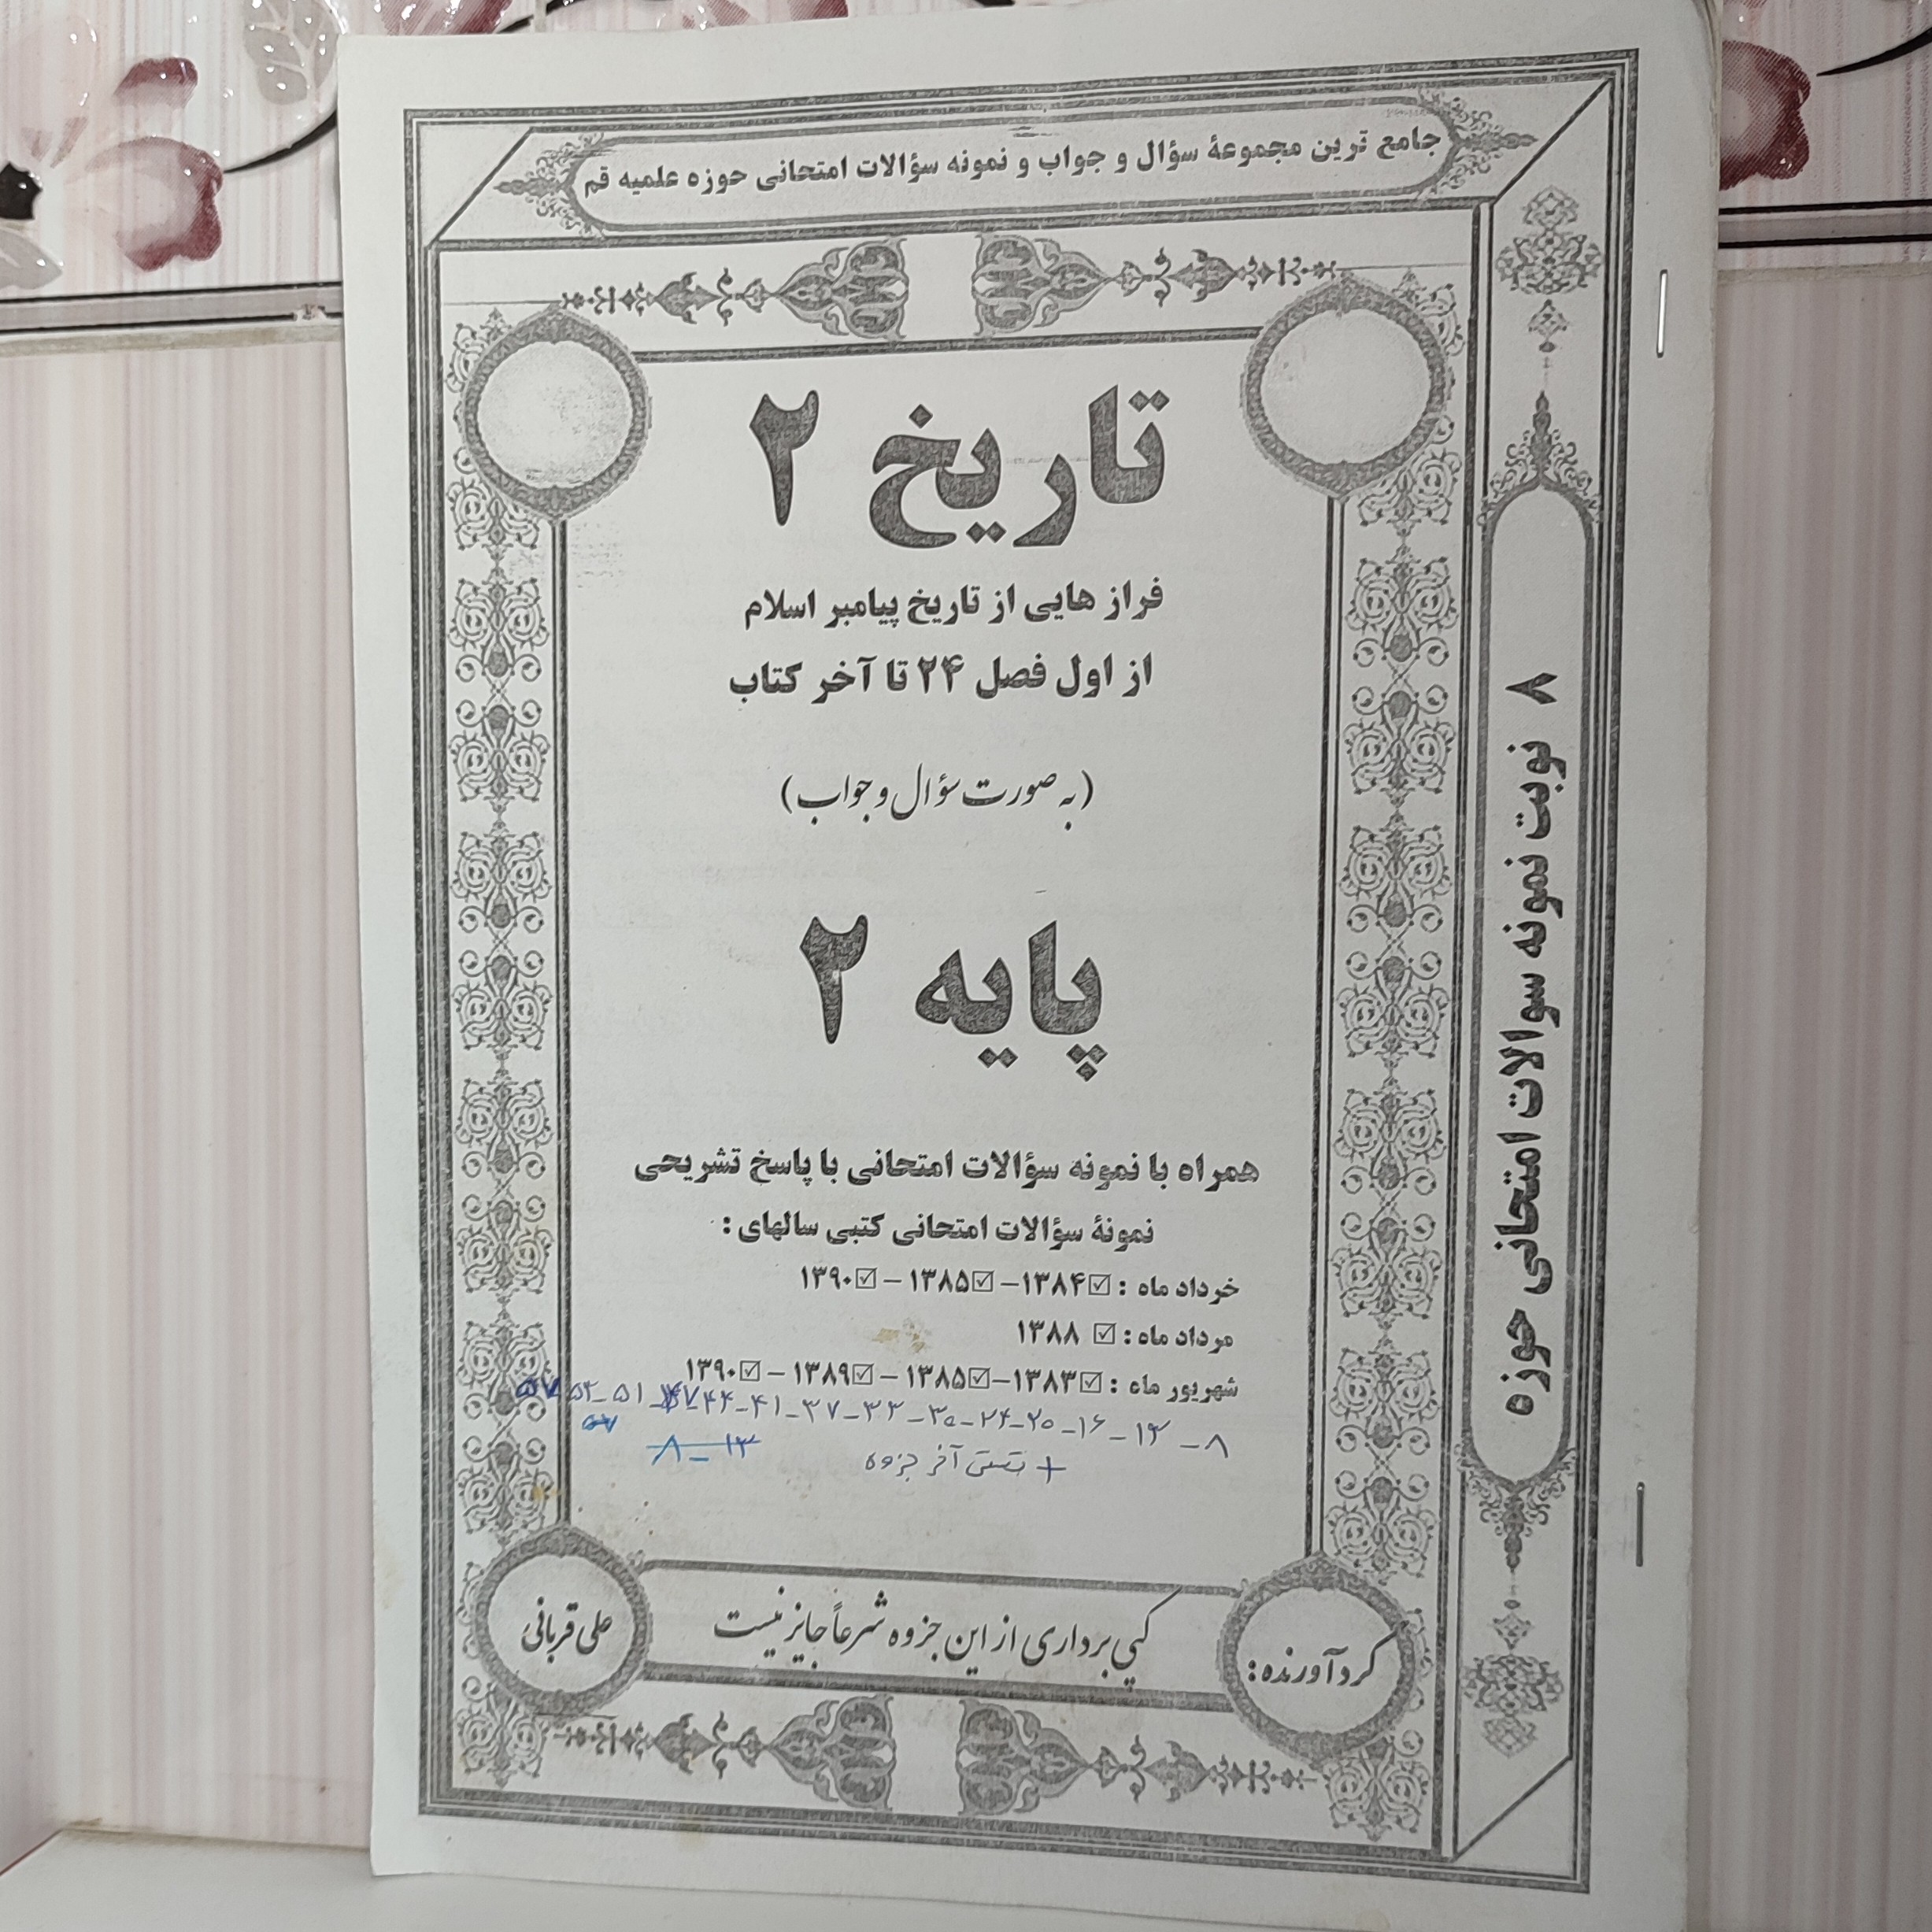 جامع ترین مجموعهٔ سؤال و جواب و نمونه سؤالات امتحانی حوزه علمیه قم
تاریخ ۲
فراز هایی از تاریخ پیامبر اسلام
از اول فصل ۲۴ تا آخر کتاب
(به صورت سؤال و جواب)
پایه ۲
همراه با نمونه سؤالات امتحانی با پاسخ تشریحی
نمونهٔ سؤالات امتحانی کتبی سالهای :
خرداد ماه : ☑۱۳۸۴– ☑۱۳۸۵ – ☑۱۳۹۰
مرداد ماه : ☑ ۱۳۸۸
شهریور ماه : ☑۱۳۸۳–☑۱۳۸۵ – ☑۱۳۸۹ – ☑۱۳۹۰
۸ – ۱۳ – ۱۶ – ۲۰ – ۲۴ – ۳۰ – ۳۳ – ۳۷ – ۴۱ – ۴۴ – ۴۷ – ۵۱ – ۵۴
۱۳ – ۸
+ تستی آخر جزوه
کپی برداری از این جزوه شرعاً جایز نیست
گردآورنده :
علی قربانی
۸ نوبت نمونه سوالات امتحانی حوزه